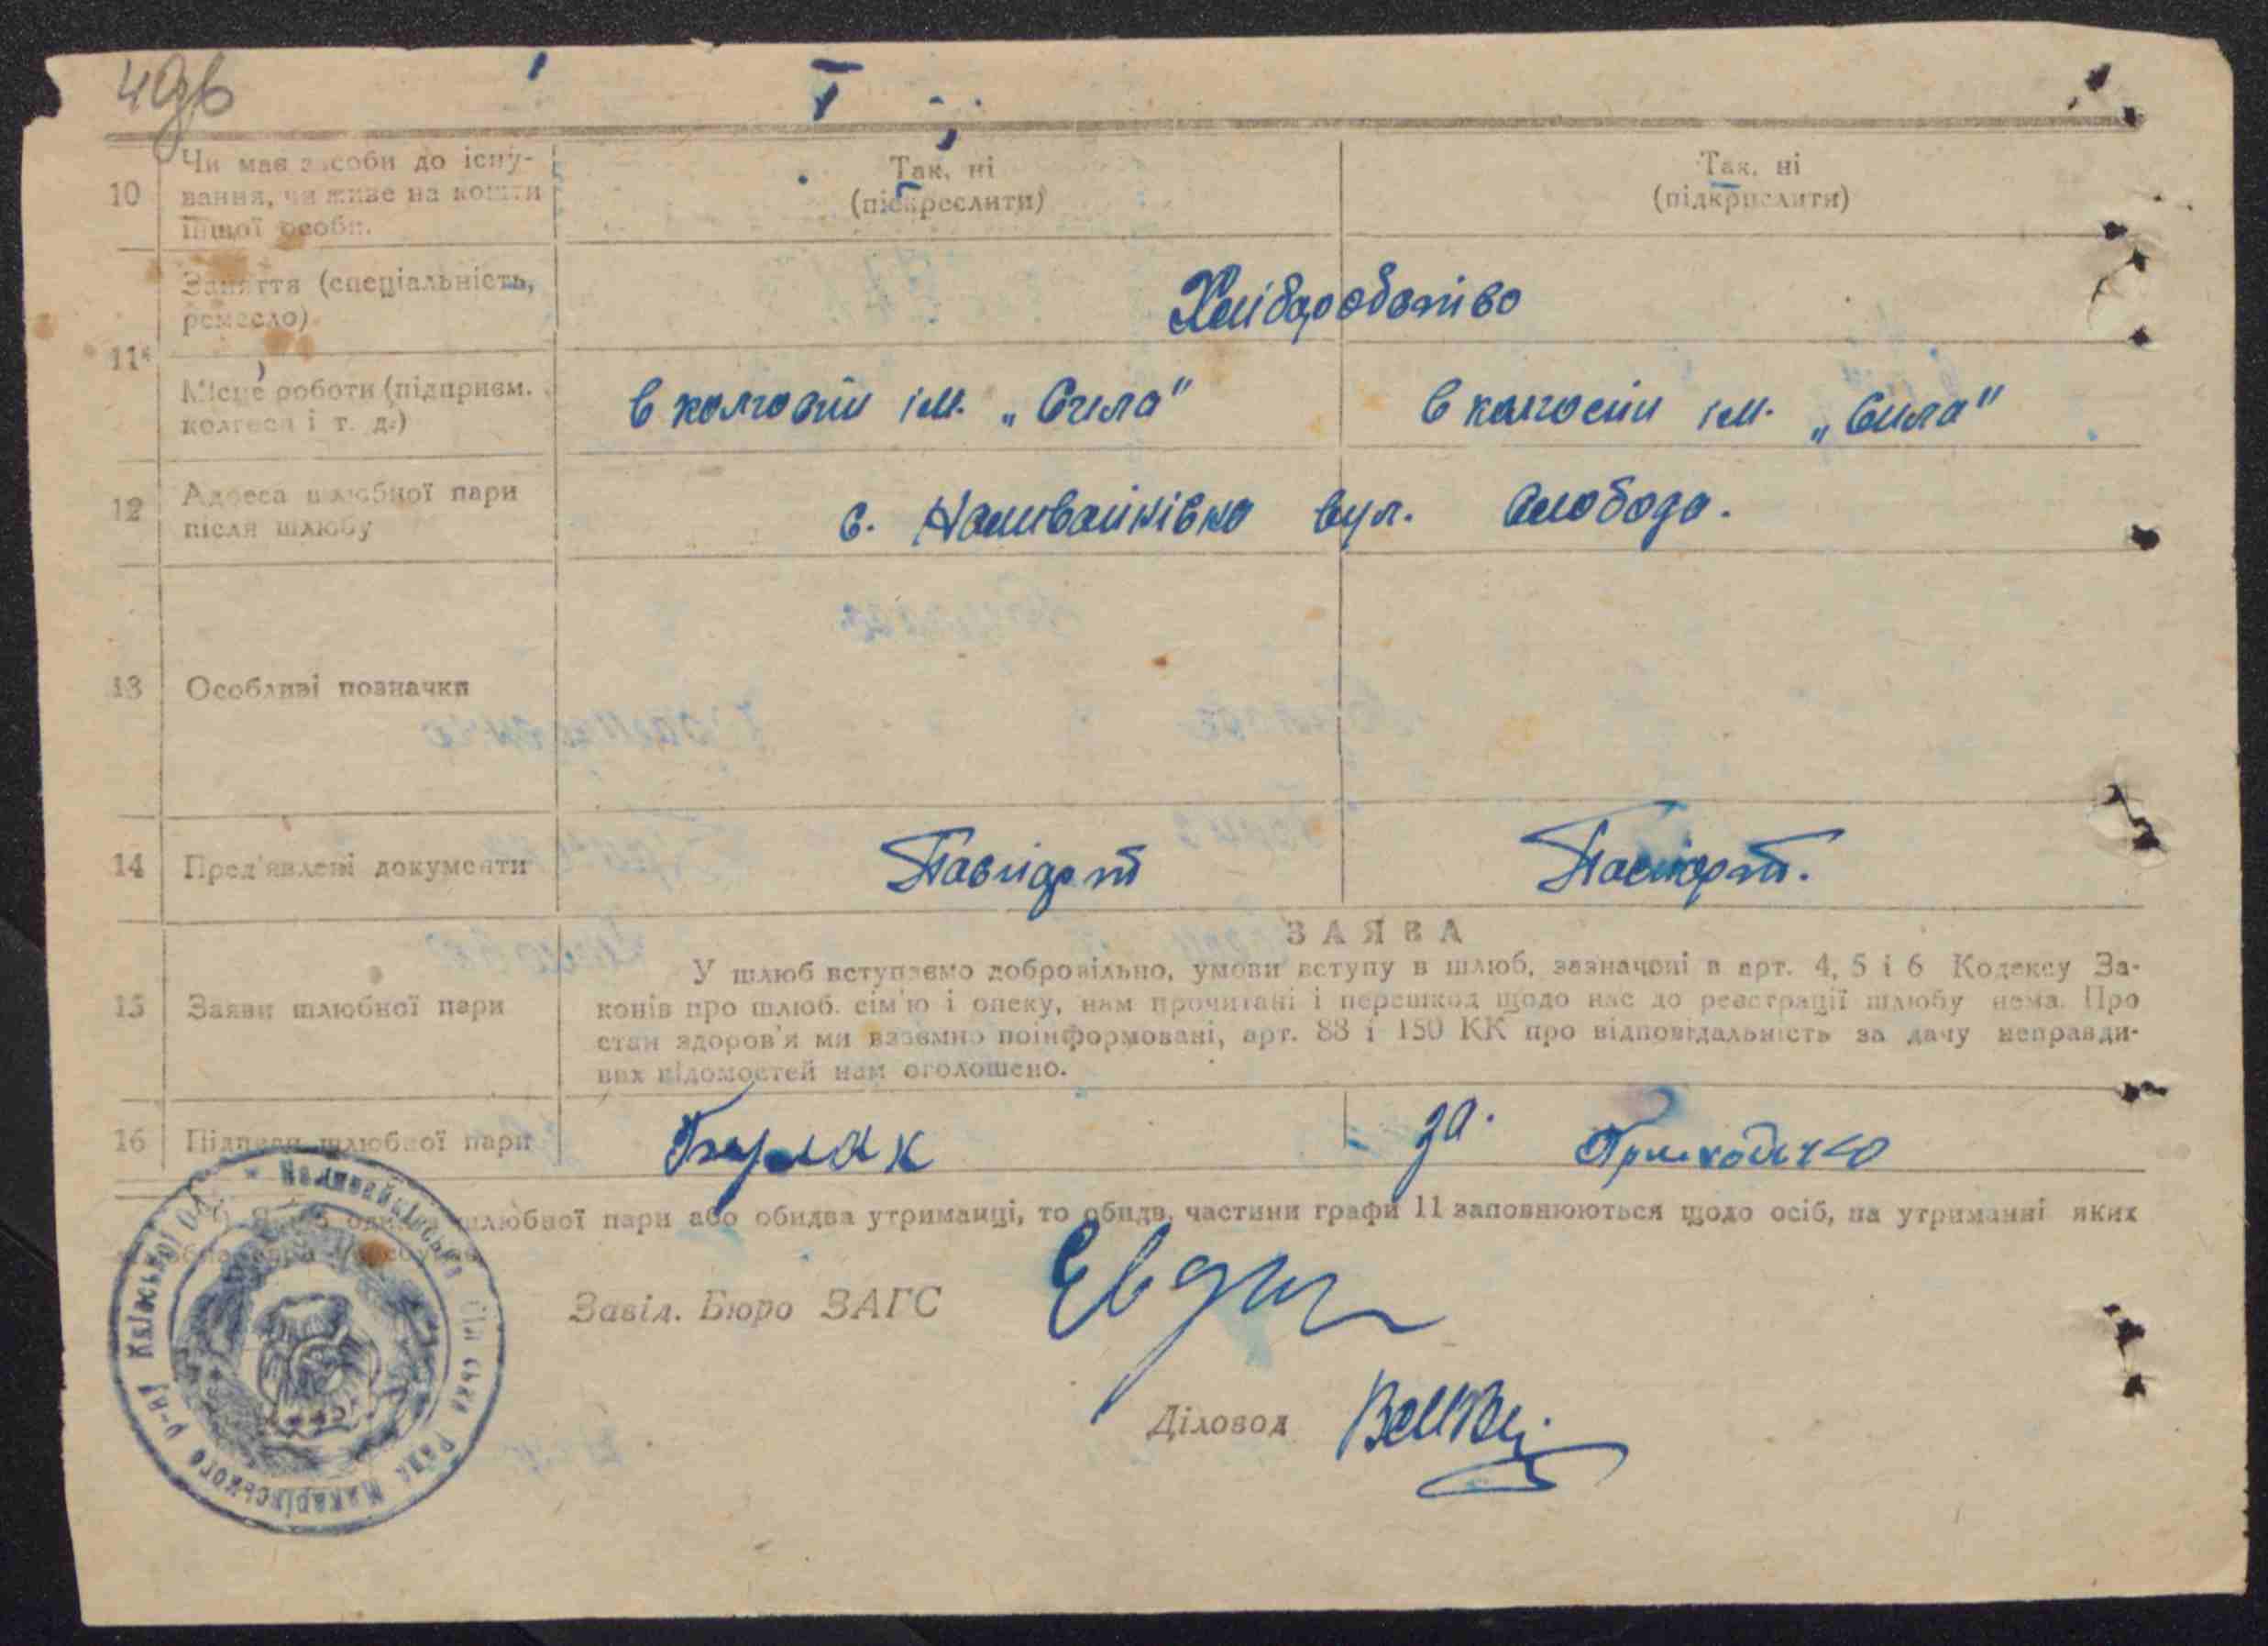 10 Чи має засоби до існу- Так, ні Так, ні
вання, чи живе на кошти (підкреслити) (підкрислити)
іншої особи.
Заняття (спеціальність,
ремесло)
Хліборобство
11
Місце роботи (підприєм. в колгоспі ім. „Сила" в колгоспі ім. „Сила"
колгосп і т. д.)
12 Адреса шлюбної пари с. Наливайківка вул. Слобода.
після шлюбу
13 Особливі позначки
14 Пред'явлені документи Паспорт Паспорт.
ЗАЯВА
У шлюб вступаємо добровільно, умови вступу в шлюб, зазначені в арт. 4, 5 і 6 Кодексу За-
15 Заяви шлюбної пари
конів про шлюб. сім'ю і опеку, нам прочитані і перешкод щодо нас до реєстрації шлюбу нема. Про
стан здоров'я ми взаємно поінформовані, арт. 88 і 150 КК про відповідальність за дачу неправди-
вих відомостей нам оголошено.
16 Підписи шлюбної пари Бурлак за. Приходько
шлюбної пари або обидва утриманці, то обидв. частини графи 11 заповнюються щодо осіб, на утриманні яких
Завід. Бюро ЗАГС
Діловод
Наливайківська Сільська Рада Макарівського р-ну Київської обл.